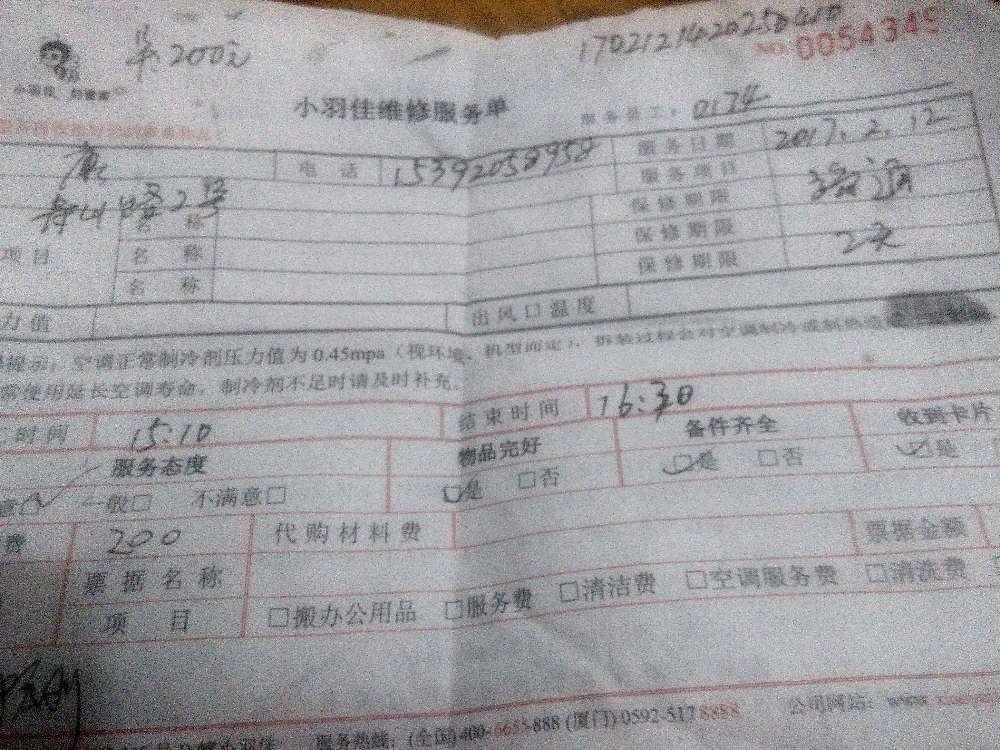 200元
1702121420250410
NO. 0054349
小羽佳
小羽佳维修服务单
服务员工: 0174
电 话 15392058958 服务日期 2017.2.12
服务项目
2号
名 称 保修期限
项目 名 称 保修期限 2天
名 称 保修期限
力值 出风口温度
提示: 空调正常制冷剂压力值为0.45mpa (视环境、机型而定), 拆装过程会对空调制冷或制热
常使用延长空调寿命, 制冷剂不足时请及时补充。
时间 15:10 结束时间 16:30
服务态度 物品完好 备件齐全 收到卡片
意□ 一般□ 不满意□ □是 □否 □是 □否 □是
费 200 代购材料费 票据金额
票据名称
项 目 □搬办公用品 □服务费 □清洁费 □空调服务费 □清洗费
服务热线: (全国)400-6655-888 (厦门)0592-5178888 公司网站: www.